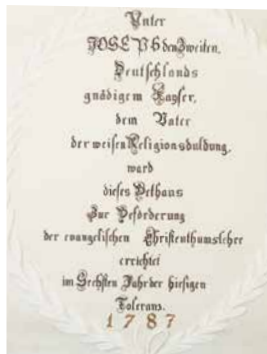 Unter
JOSEPS den Zweiten,
Deutschlands
gnädigem Kayser,
dem Vater
der weisen Religionsduldung,
ward
dieses Bethaus
Zur Beförderung
der evangelischen Christenthumslehre
errichtet
im Sechsten Jahr der hiesigen
Toleranz.
1787